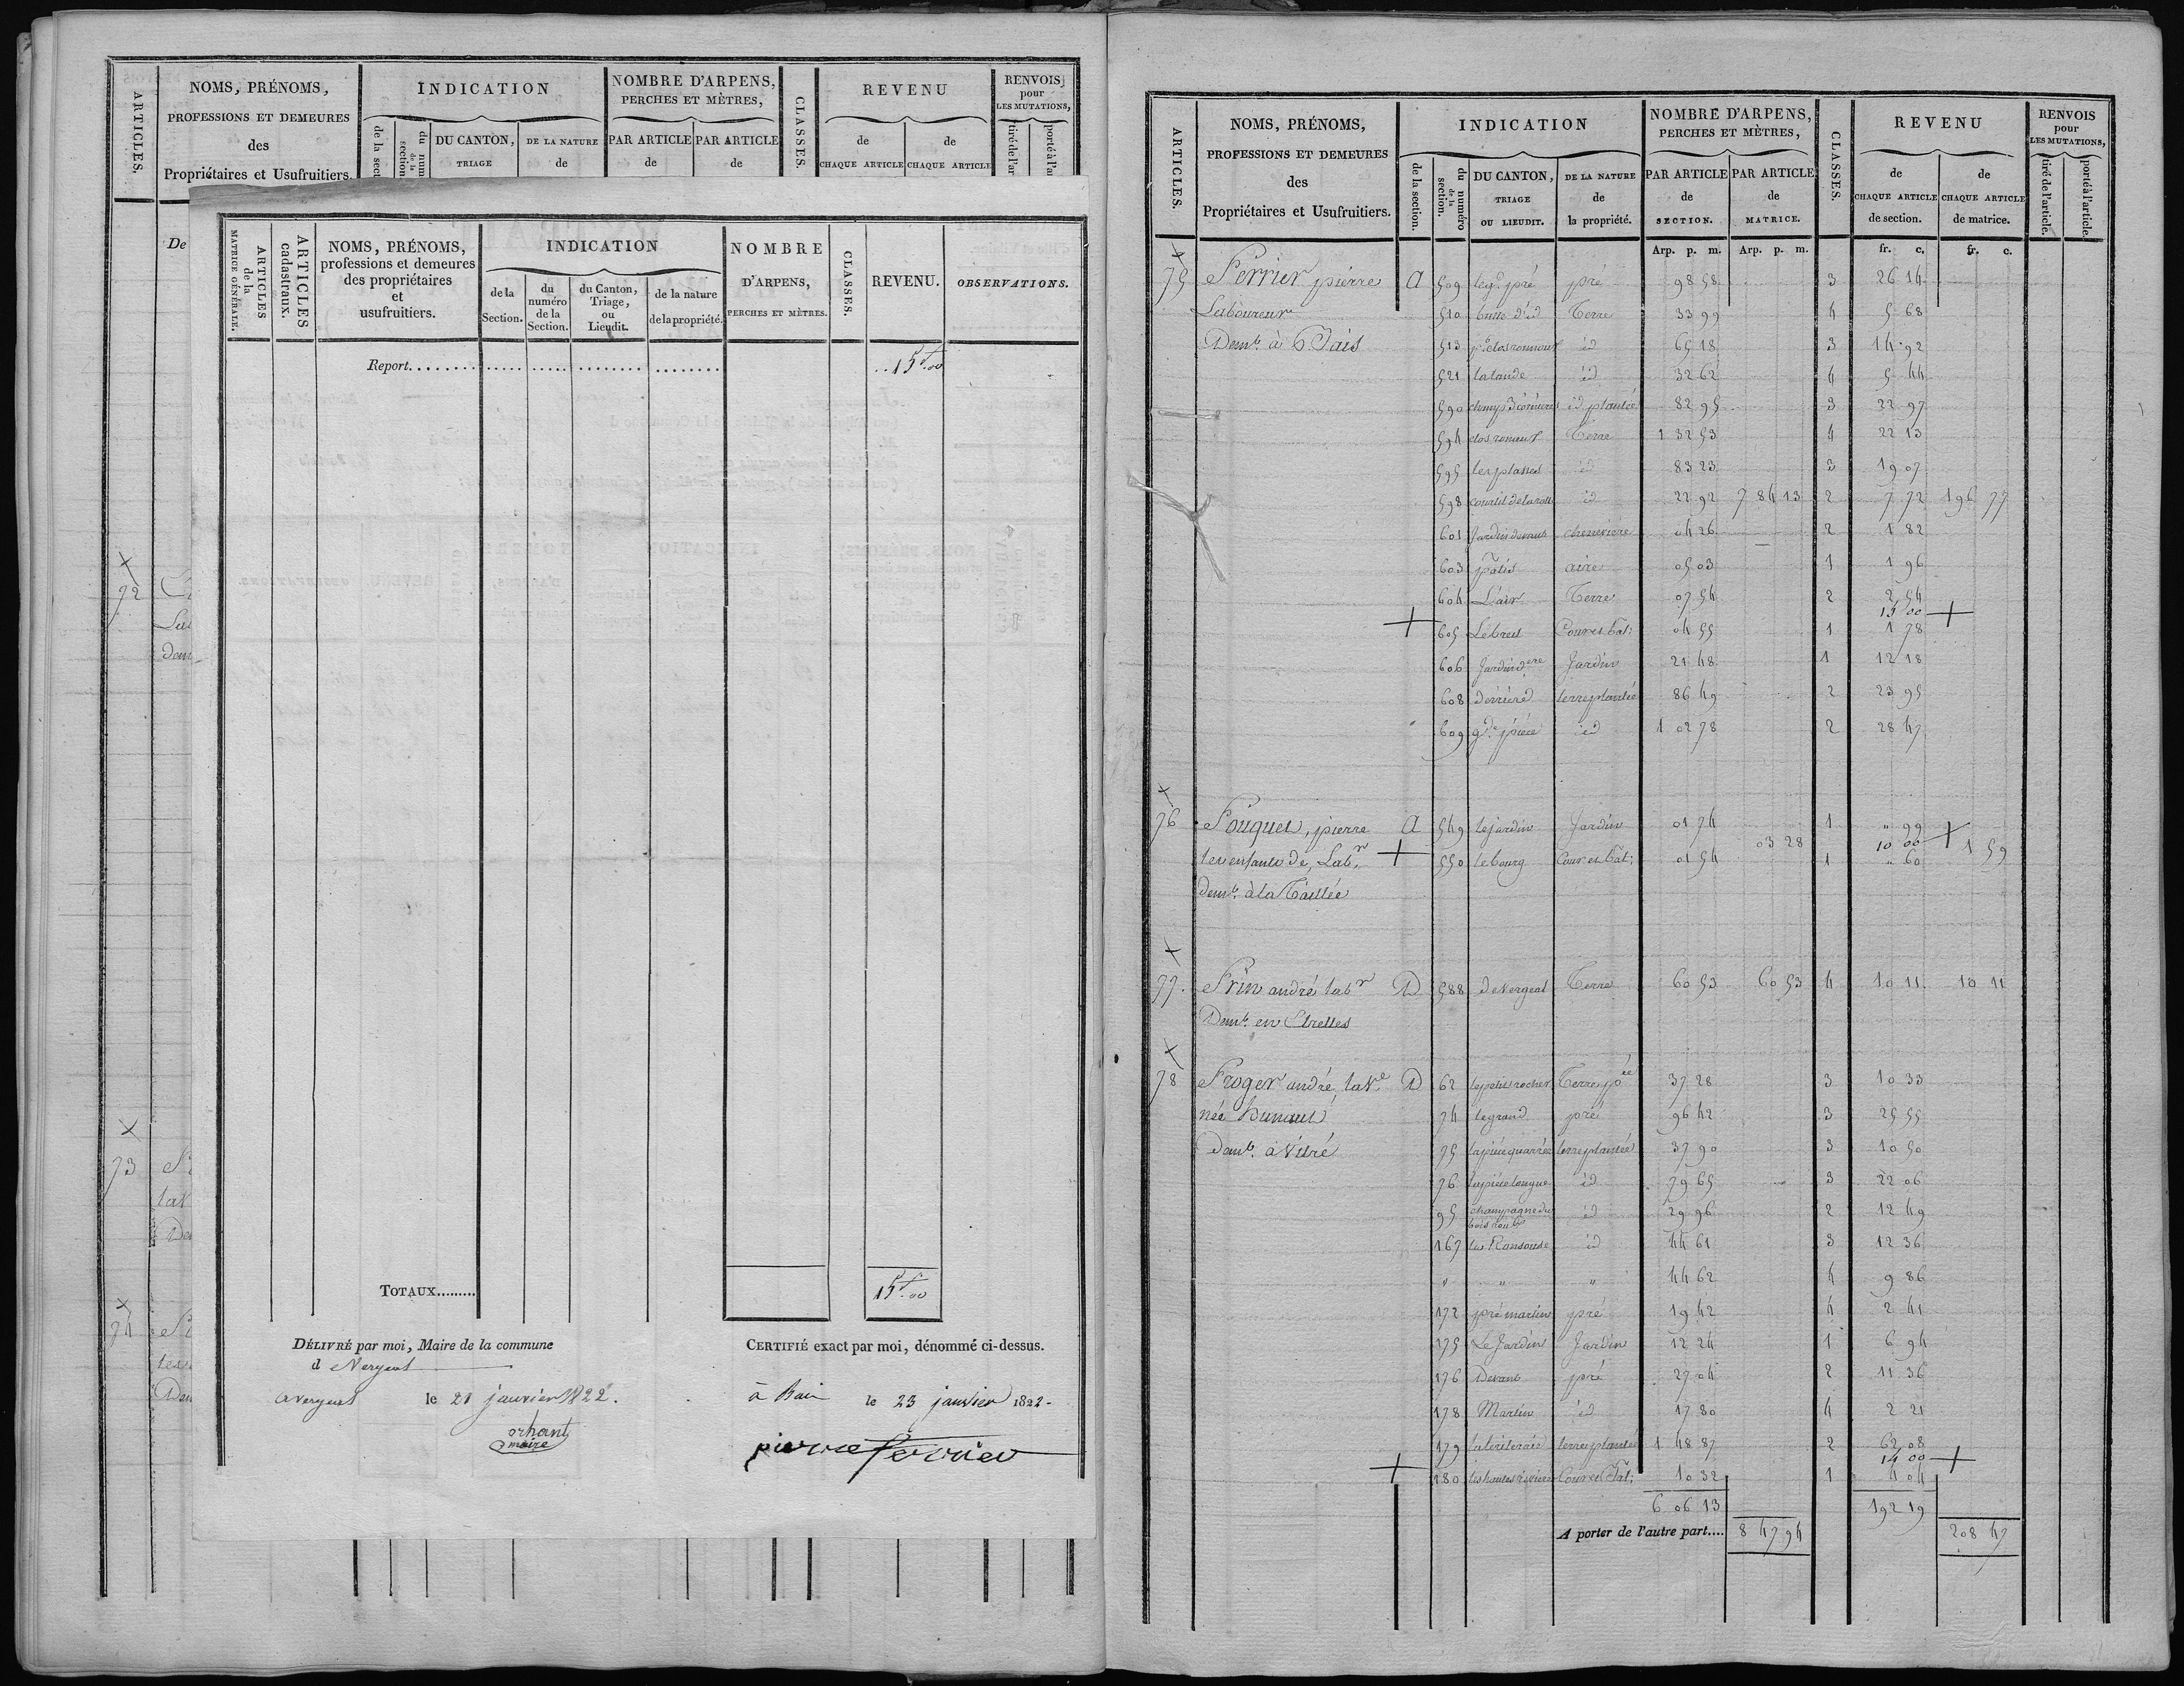 ARTICLES.
NOMS, PRÉNOMS,
PROFESSIONS ET DEMEURES
des
Propriétaires et Usufruitiers.
INDICATION
de la sect
du num
de la
section
DU CANTON,
TRIAGE
DE LA NATURE
de
NOMBRE D'ARPENS,
PERCHES ET MÈTRES,
PAR ARTICLE
de
PAR ARTICLE
de
CLASSES.
REVENU
de
CHAQUE ARTICLE
de
CHAQUE ARTICLE
RENVOIS
pour
LES MUTATIONS,
tiré de l'ar
porté à l'a
De
72
Lab
dem
73
la V
De
74
les
Dem
ARTICLES
de la
MATRICE GÉNÉRALE.
ARTICLES
cadastraux.
NOMS, PRÉNOMS,
professions et demeures
des propriétaires
et
usufruitiers.
INDICATION
de la
Section.
du
numéro
de la
Section.
du Canton,
Triage,
ou
Lieudit.
de la nature
de la propriété.
NOMBRE
D'ARPENS,
PERCHES ET MÈTRES.
CLASSES.
REVENU.
OBSERVATIONS.
Report..... 15f.00
TOTAUX......... 15f.00
DÉLIVRÉ par moi, Maire de la commune
d Vergeal
a vergeal le 21 janvier 1822.
orhant
maire
CERTIFIÉ exact par moi, dénommé ci-dessus.
à Bais le 23 janvier 1822.
pierre ferrier
ARTICLES.
NOMS, PRÉNOMS,
PROFESSIONS ET DEMEURES
des
Propriétaires et Usufruitiers.
INDICATION
de la section.
du numéro
de la
section.
DU CANTON,
TRIAGE
OU LIEUDIT.
DE LA NATURE
de
la propriété.
NOMBRE D'ARPENS,
PERCHES ET MÈTRES,
PAR ARTICLE
de
SECTION.
PAR ARTICLE
de
MATRICE.
CLASSES.
REVENU
de
CHAQUE ARTICLE
de section.
de
CHAQUE ARTICLE
de matrice.
RENVOIS
pour
LES MUTATIONS,
tiré de l'article.
porté à l'article.
Arp. p. m. Arp. p. m. fr. c. fr. c.
75 Perrier pierre A 509 le gd. pré pré 98 58 3 26 14
Laboureur 510 butte d'id Terre 33 99 4 5 68
Demt. à Bais 513 id 65 18 3 14 92
521 la lande id 32 62 4 5 44
590 id plantée 82 95 3 22 97
594 clos renault Terre 1 32 53 4 22 13
595 les plasses id 83 23 3 19 07
598 id 22 92 7 84 13 2 7 72 196 77
601 Jardin devant cheneviere 04 26 2 1 82
603 Patis aire 05 03 1 1 96
604 L'air Terre 07 54 2 2 54
15 00
605 Le breil Cour et bât: 04 55 1 1 78
606 Jardin dere Jardin 21 48 1 12 18
608 derriere terre plantée 86 49 2 23 95
609 gde piéce id 1 02 78 2 28 47
76 Pouquet, pierre A 549 le jardin Jardin 01 74 1 " 99
les enfants de, Labr 550 le bourg Cour et bât: 01 54 03 28 1 10 00 " 60 1 59
demt. à la Taillée
77. Prin andré labr D 588 de Vergeal Terre 60 53 60 53 4 10 11 10 11
Demt. en Etrelles
78 Proger andré, la Ve D 62 le petit rocher Terre pée 37 28 3 10 33
née hunault 74 le grand pré 96 42 3 25 55
Demt. à Vitré 75 la piéce quarrée terre plantée 37 90 3 10 50
76 la piéce longue id 79 65 3 22 06
95 champagne du id 29 96 2 12 49
167 la Ransouse id 44 61 3 12 36
" " " 44 62 4 9 86
172 pré martin pré 19 42 4 2 41
175 Le Jardin Jardin 12 24 1 6 94
176 Devant pré 27 04 2 11 36
178 Martin id 17 80 4 2 21
179 terre plantée 1 48 87 2 62 08
14 00
180 les hautes rivieres Cour et Bât: 10 32 1 4 04
6 06 13 192 19
A porter de l'autre part.... 8 47 94 208 47